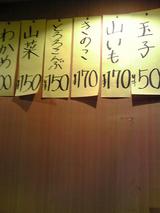 玉子
¥50
山いも
¥170
きのこ
¥170
とろろこんぶ
¥150
山菜
¥150
わかめ
00